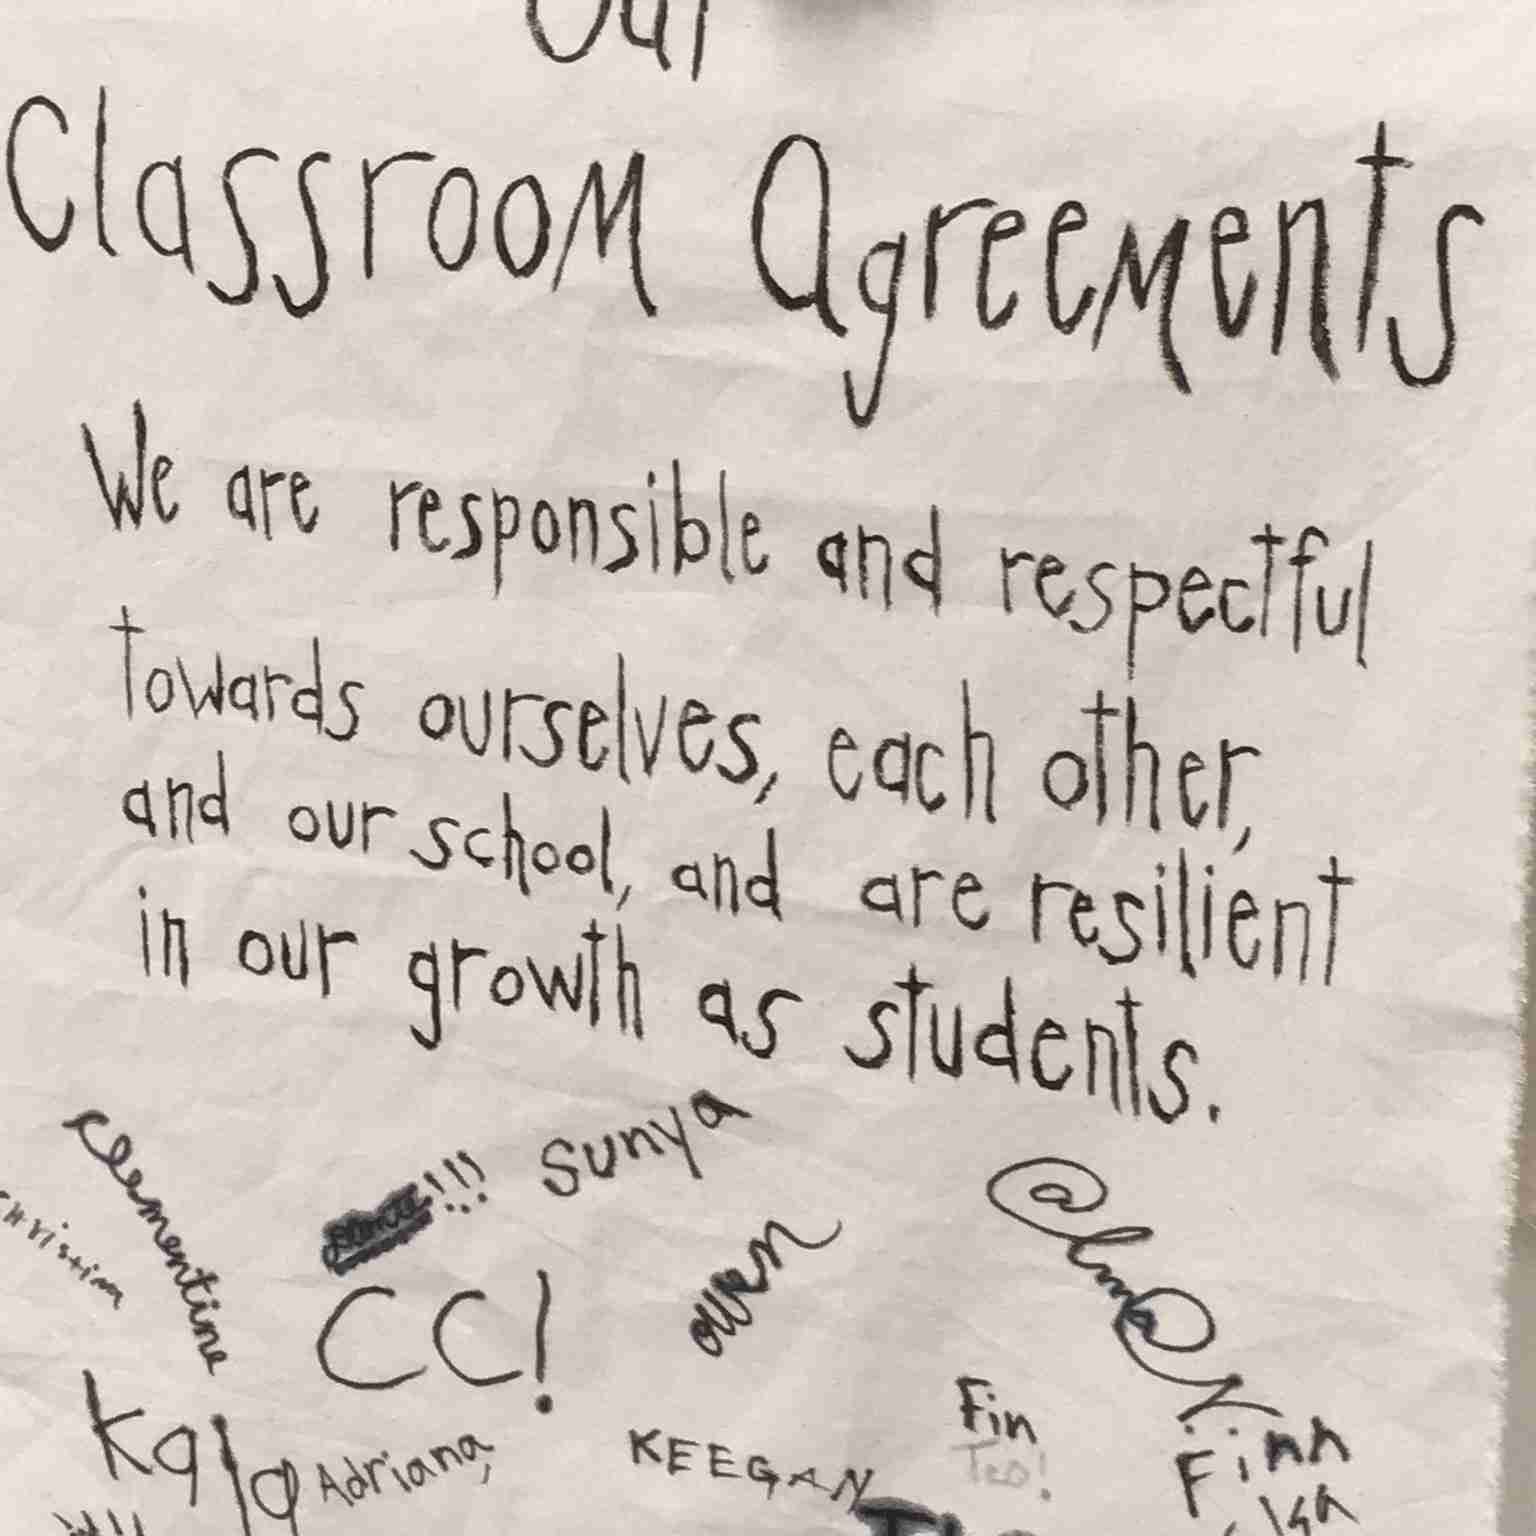 Our
Classroom Agreements
We are responsible and respectful
towards ourselves, each other,
and our school, and are resilient
in our growth as students.
Clementine
!!! Sunya
Christian
CC!
owen
Kala
Adriana
KEEGAN
Fin
Teo!
Finn